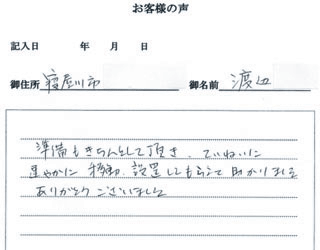 お客様の声
記入日 年 月 日
御住所 寝屋川市 御名前 渡辺
準備もきちんとして頂き、ていねいに
速やかに移動、設置してもらえて助かりました
ありがとうございました